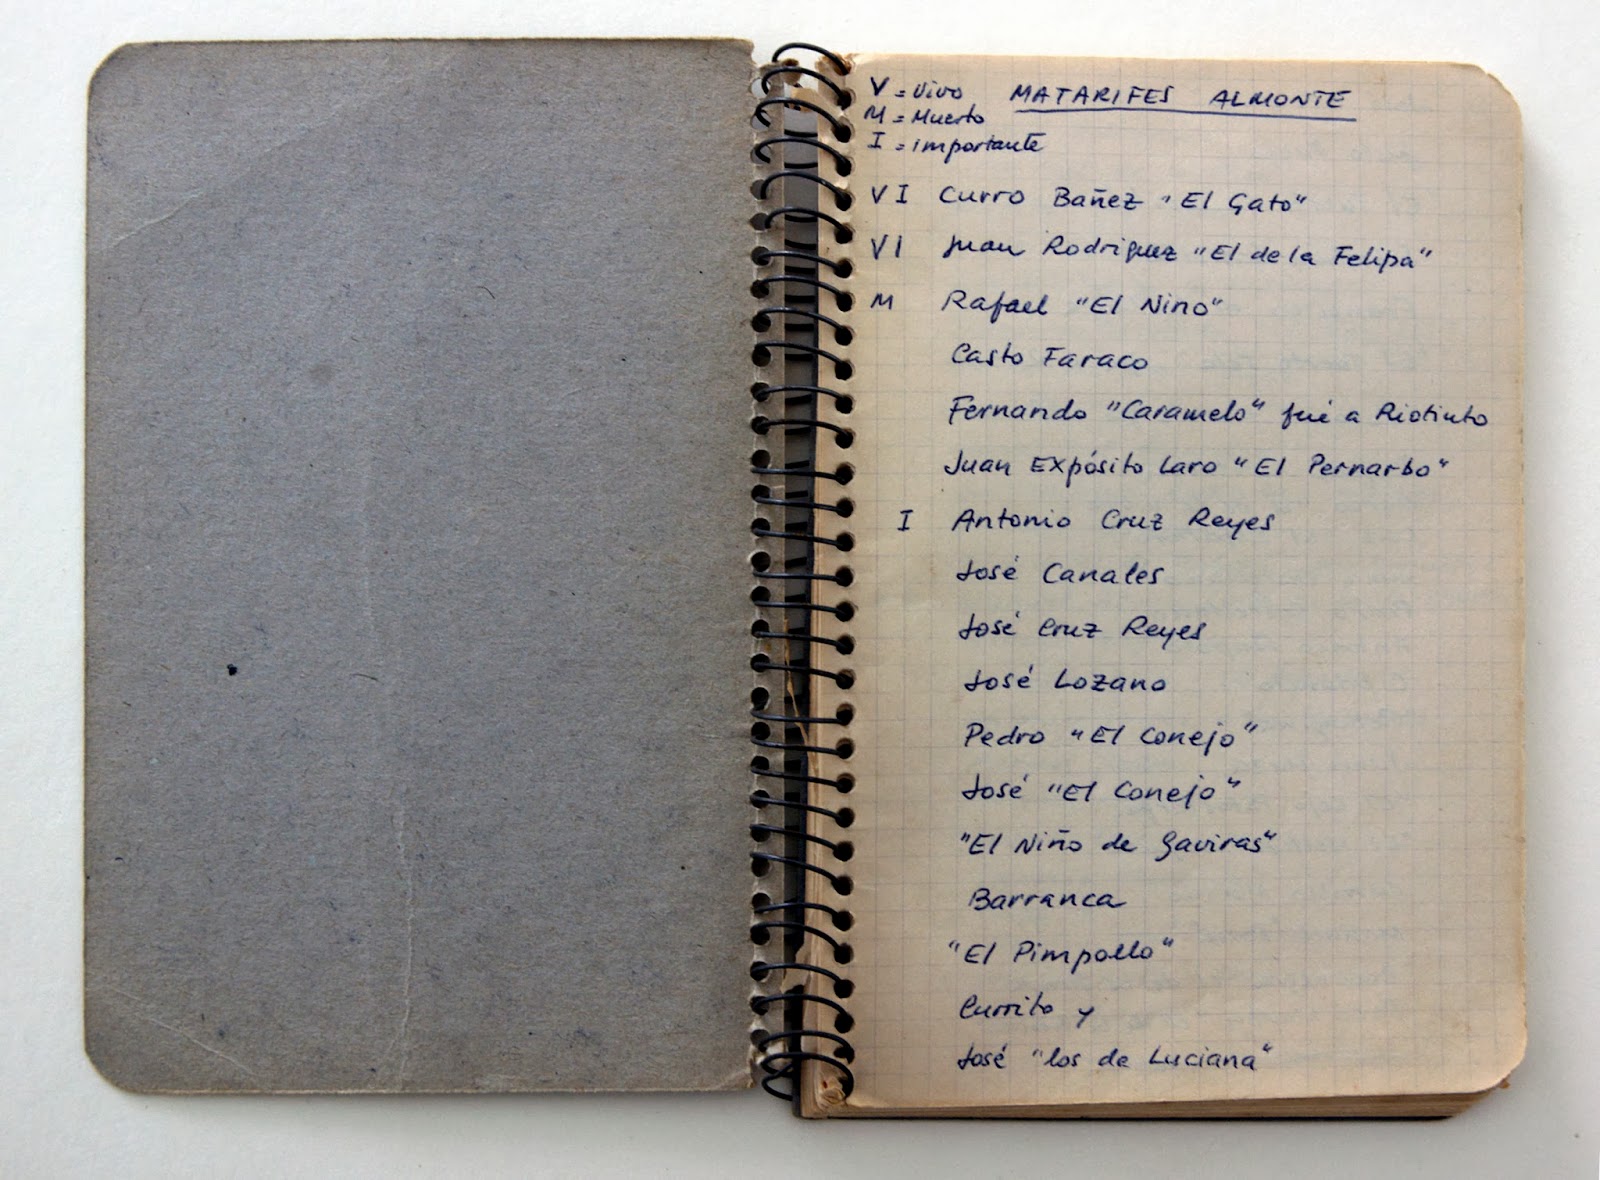 V = Vivo MATARIFES ALMONTE
M = Muerto
I = importante
V I Curro Bañez "El Gato"
V I Juan Rodriguez "El de la Felipa"
M Rafael "El Nino"
Casto Faraco
Fernando "Caramelo" fué a Riotinto
Juan Expósito Laro "El Pernarbo"
I Antonio Cruz Reyes
José Canales
José Cruz Reyes
José Lozano
Pedro "El Conejo"
José "El Conejo"
"El Niño de Gaviras"
Barranca
"El Pimpollo"
Currito y
José "los de Luciana"